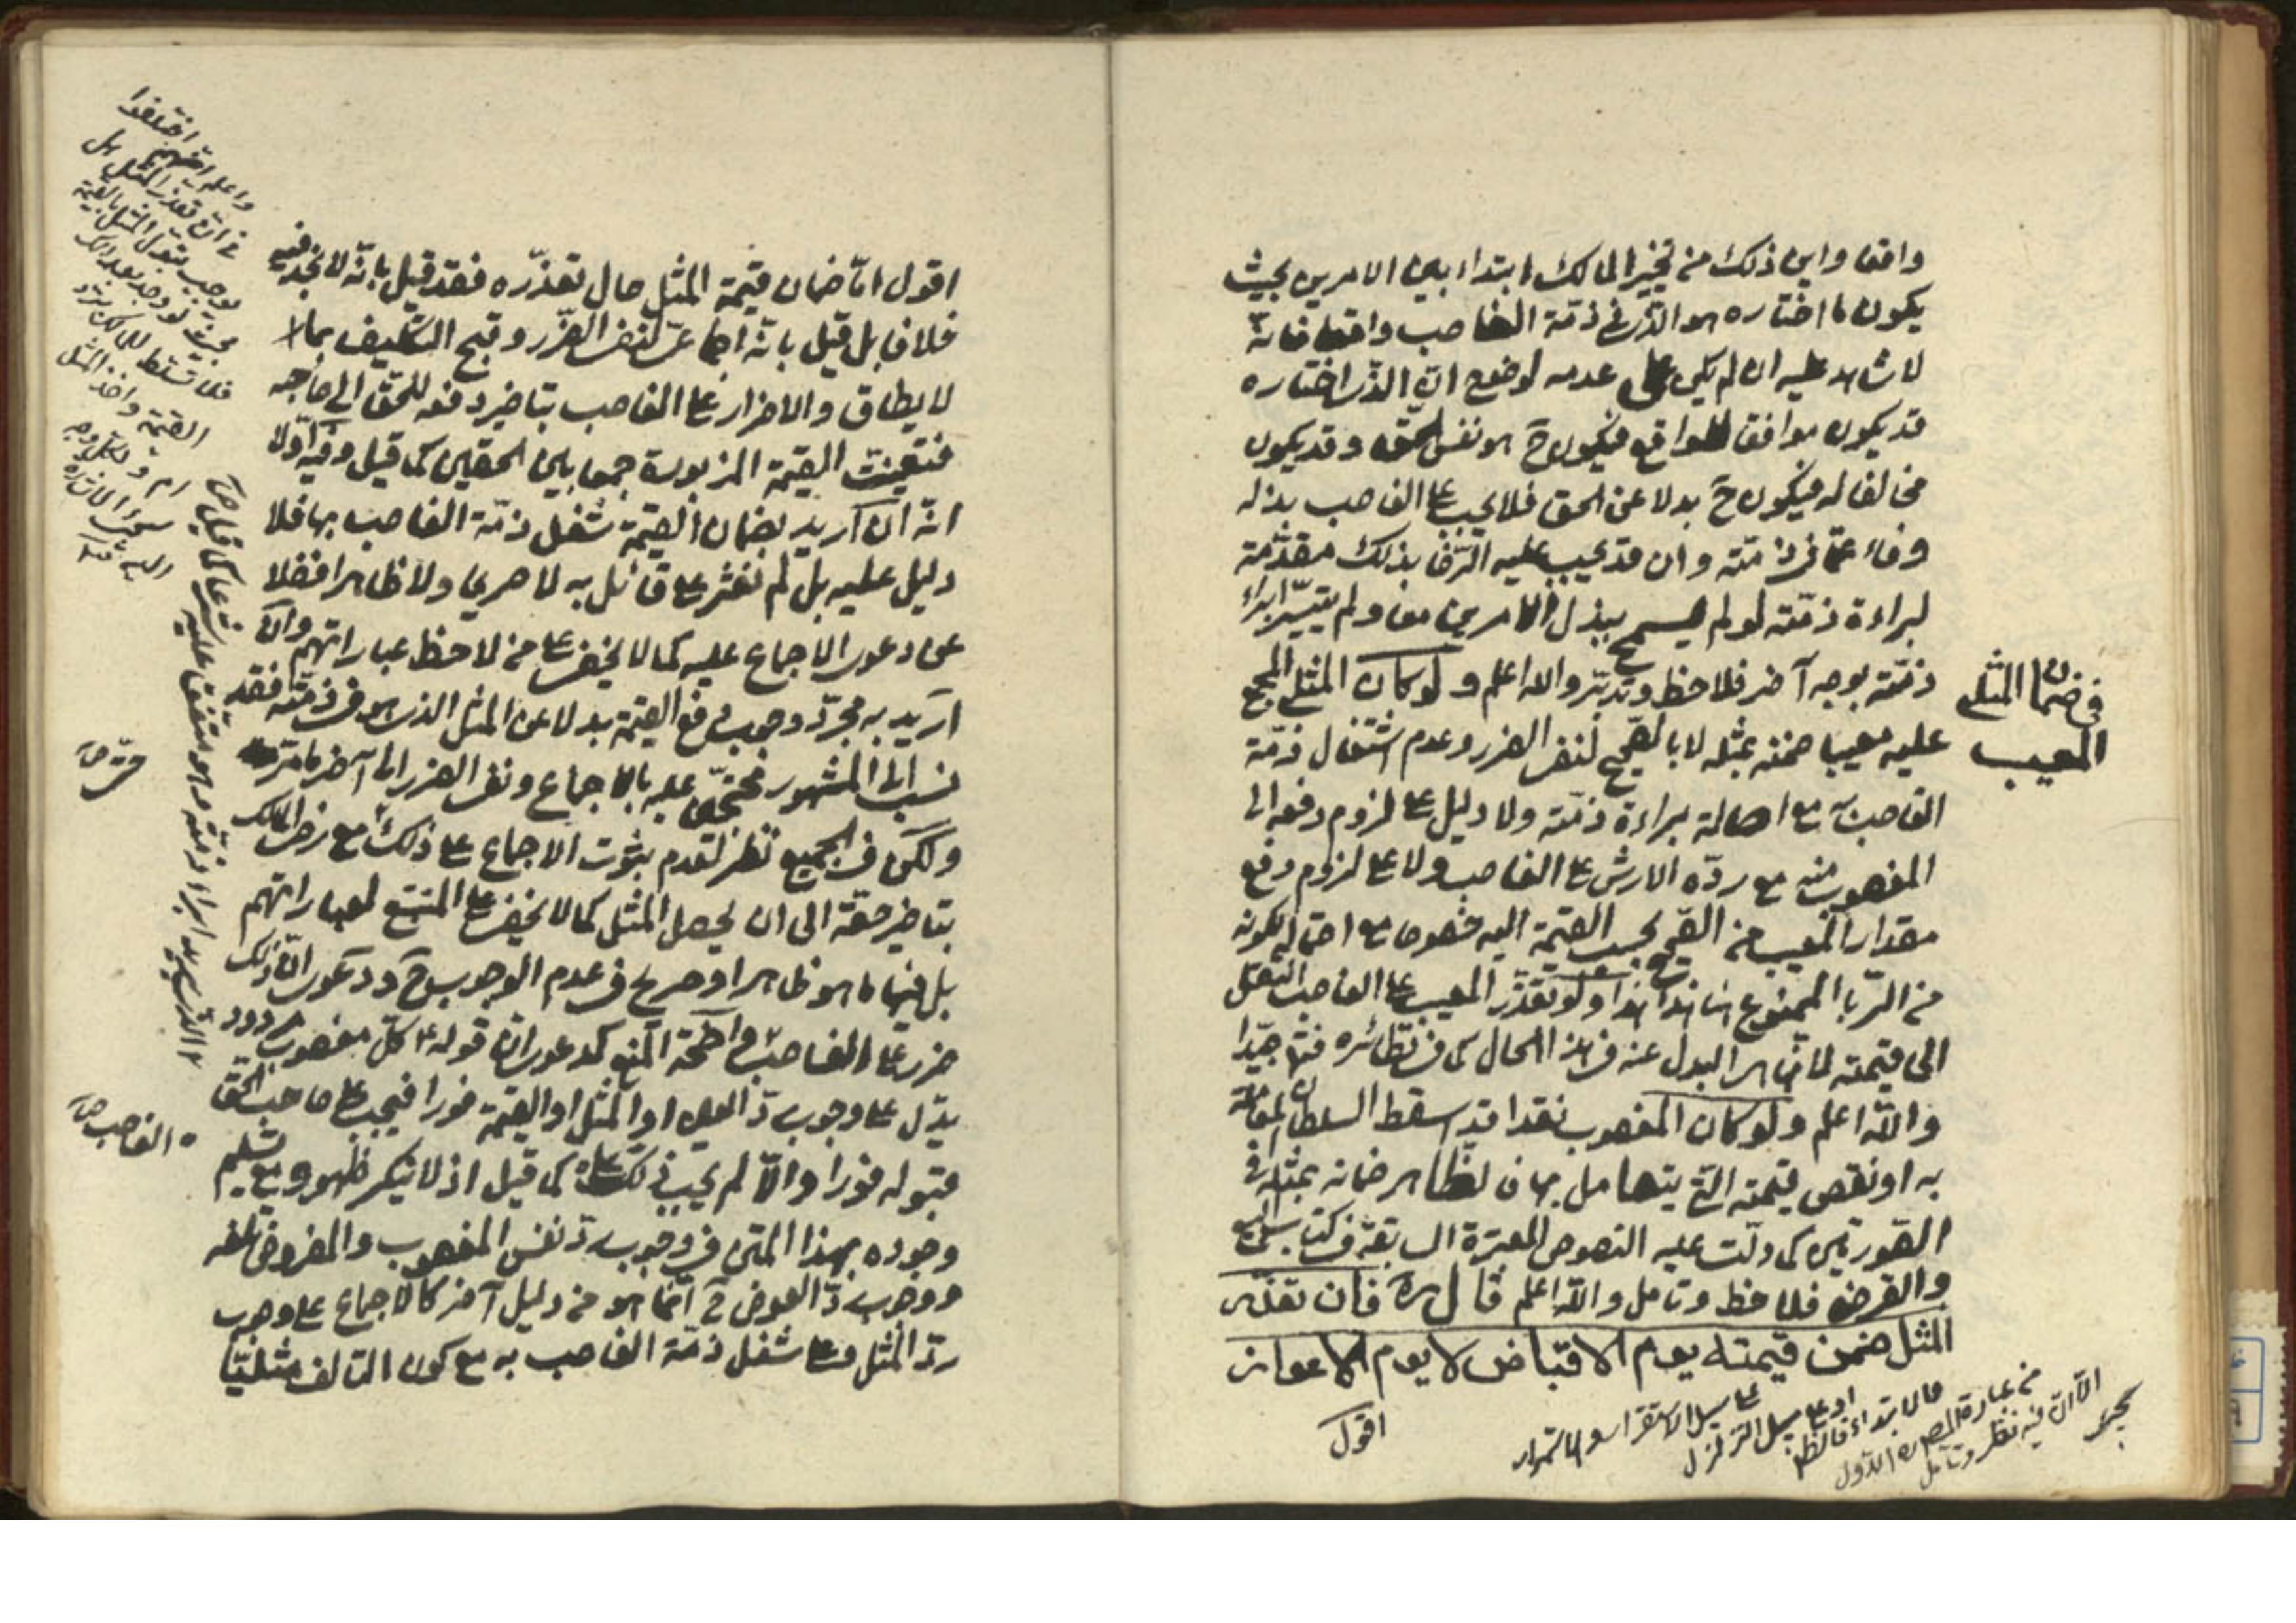 واقعا واين ذلك من تخيير المالك ابتداء بين الامرين بحيث
يكون ما اختاره هو الذي في ذمة الغاصب واقعا فانه
لا شاهد عليه ان لم يكن على عدمه لوضوح ان الذي اختاره
قد يكون موافقا للواقع فيكون ح هو نفس الحق وقد يكون
مخالفا له فيكون ح بدلا عن الحق فلا يجب على الغاصب بذله
وفاء عما في ذمته وان قد يجب عليه الرضا بذلك مقدمة
لبراءة ذمته لو لم يسمح ببذل الامرين معا ولم يتيسر ابراء
ذمته بوجه آخر فلاحظ وتدبر والله اعلم ولو كان المثلي المجمع
عليه معيبا ضمنه بمثله لا بالصحيح لنفي الضرر وعدم اشتغال ذمة
الغاصب به مع اصالة براءة ذمته ولا دليل على لزوم دفعه الى
المغصوب منه مع رده الارش على الغاصب ولا على لزوم دفع
مقدار المعيب من الصحيح بحسب القيمة اليه خصوصا مع احتمال كونه
من الربا الممنوع هذا ولو تعذر المعيب على الغاصب انتقل
الى قيمته لما هو البدل عنه في هذا الحال كما في نظائره فتفهم جيدا
والله اعلم ولو كان المغصوب نقدا قد اسقط السلطان المعاملة
به او نقص قيمته التي يتعامل بها فالظاهر ضمانه بمثله في
الصورتين كما دلت عليه النصوص المعتبرة السابقة في كتابي
والقرض فلاحظ وتامل والله اعلم قال ره فان تعذر
المثل ضمن قيمته يوم الاقباض لا يوم الاعواز
اقول
في ضمان المثلي
المعيب
على سبيل الاستقرار والاستمرار
او على سبيل التزلزل
من عبارة المصـ ره الاول
الا ان فيه نظر وتامل
اقول اما ضمان قيمة المثل حال تعذره فقد قيل بانه لا نجد فيه
خلافا بل قيل بانه اجماعي لنفي الضرر وقبح التكليف بما لا
لا يطاق والاضرار على الغاصب بتاخير دفعه للحق الى صاحبه
فتعينت القيمة المزبورة جمعا بين الحقين كما قيل وفيه اولا
انه ان اريد بضمان القيمة شغل ذمة الغاصب بها فلا
دليل عليه بل لم نعثر على قائل به لا صريحا ولا ظاهرا فضلا
عن دعوى الاجماع عليه كما لا يخفى على من لاحظ عباراتهم وان
اريد به مجرد وجوب دفع القيمة بدلا عن المثل الذي هو في ذمته فقد
نسب الى المشهور محتجين عليه بالاجماع ونفي الضرر الى آخر ما مر
ولكن في الجميع نظر لعدم ثبوت الاجماع على ذلك مع رضى المالك
بتاخير حقه الى ان يحصل المثل كما لا يخفى على المتتبع لعباراتهم
بل فيها ما هو ظاهر او صريح في عدم الوجوب ح ودعوى ان ذلك
ضرر على الغاصب واضحة المنع كدعوى ان قوله ع كل مغصوب مردود
يدل على وجوب رد العين او المثل او القيمة فورا فيجب على صاحب الحق
قبوله فورا والا لم يجب ذلك عليه كما قيل اذ لا ينكر ظهوره بعد تسليم
وجوده بهذا المتن في وجوب رد نفس المغصوب والمفروض تلفه
ووجوب رد العوض ح انما هو من دليل آخر كالاجماع على وجوب
رد المثل وعلى شغل ذمة الغاصب به مع كون التالف مثليا
واعلم انهم اختلفوا
في ان تعذر المثل هل
يوجب تحول المثل بالقيمة
بحيث لو وجد بعد ذلك
فلا تسلط للمالك برد
القيمة واخذ المثل
ام لا ولكل وجه
الغاصب صح